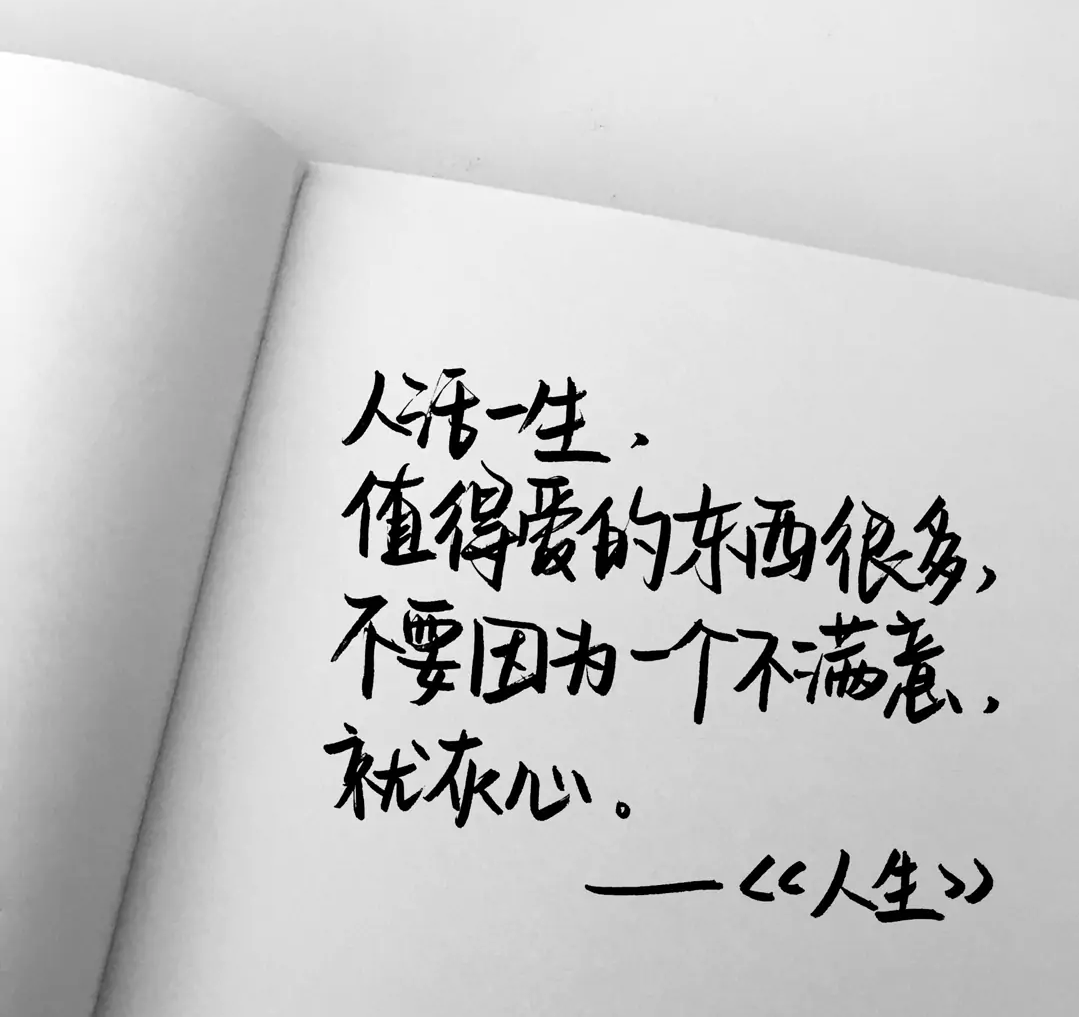 人活一生，
值得爱的东西很多，
不要因为一个不满意，
就灰心。
——《人生》